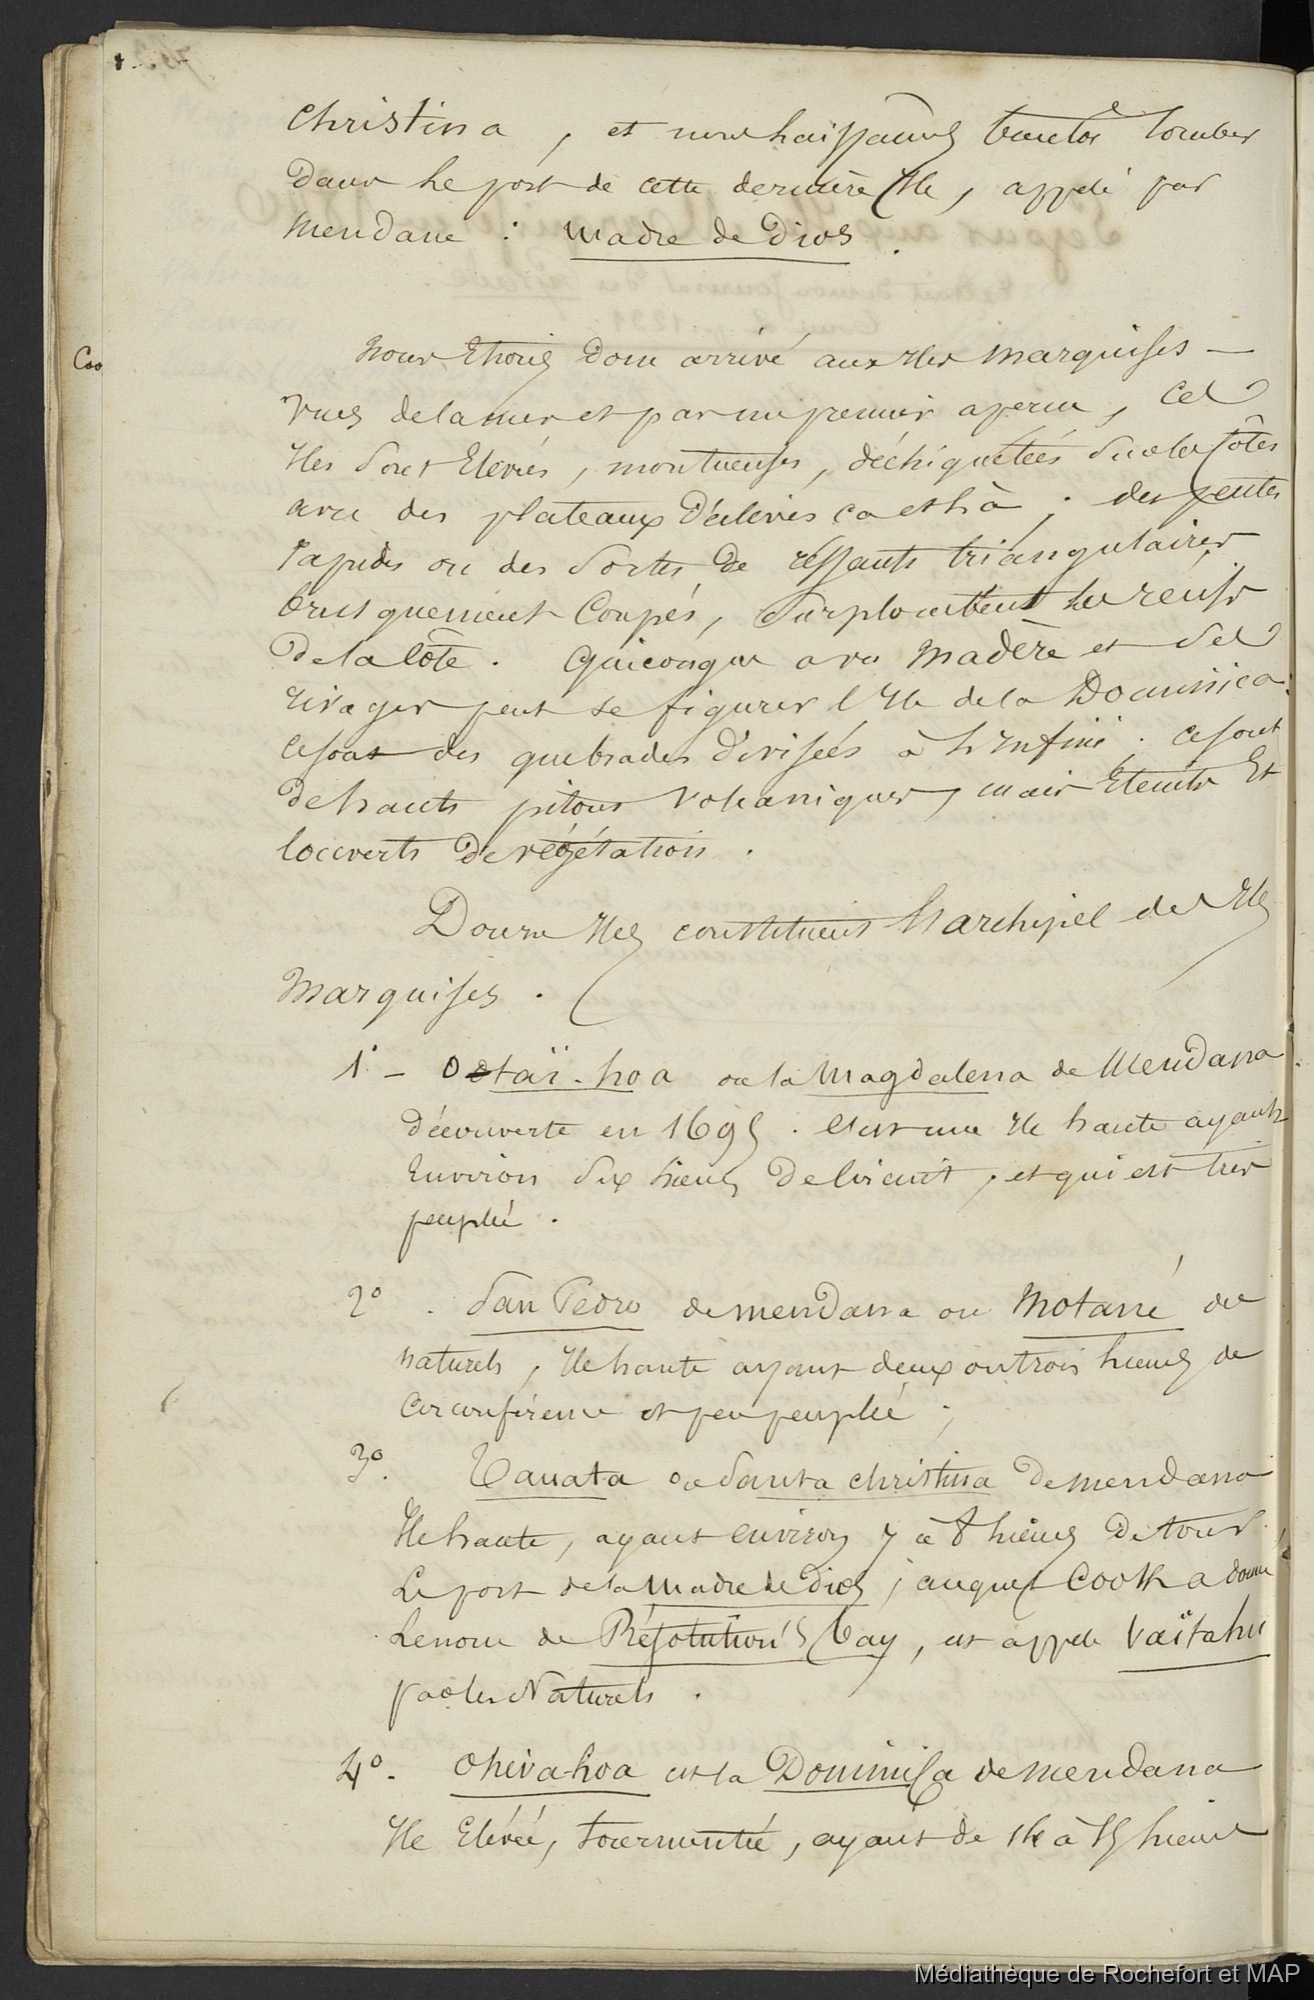 Christina, et nous laissames bientot tomber
dans le port de cette dernière Ile, appelé par
Mendane : Madre de Dios.
Coo
Nous Etions donc arrivé aux Iles Marquises —
Vues de la mer et par un premier apercu, Ces
Iles sont Elevées, montueuses, déchiquetées sur les côtes
avec des plateaux d'élevés ca et là ; des pentes
rapides ou des sortes de ressauts triangulaires
brusquement Coupés, surplombent les récifs
de la Côte. Quiconque a vu Madère et ses
rivages peut se figurer l'Ile de la Dominica :
ce sont des quebrades divisées à l'Infini. ce sont
de hauts pitons Volcaniques, mais Eteints Et
Couverts de végétation.
Douze Iles constituent l'archipel des Iles
Marquises.
1° - Otaï-hoa ou la Magdalena de Mendana
découverte en 1695. C'est une Ile haute ayant
Environ six lieues de circuit, et qui est très
peuplée.
2° . San Pedro de mendana ou Motané des
naturels, Ile haute ayant deux ou trois lieues de
Circonférence et peu peuplée ;
3°. Tauata ou Santa christina de mendana
Ile haute, ayant environ 7 à 8 lieues de tour
Le port de la Madre de Dios, auquel Cook a donné
le nom de Résolution's bay, est appelé Vaïtahu
par les Naturels.
4°. Ohiva-hoa est la Dominica de mendana
Ile Elévée, tourmentée, ayant de 14 à 15 lieues
Médiathèque de Rochefort et MAP